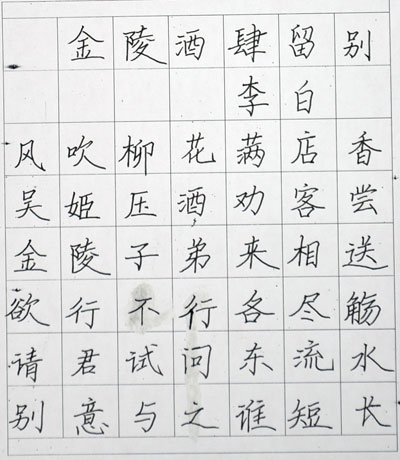 金陵酒肆留别
李白
风吹柳花满店香
吴姬压酒劝客尝
金陵子弟来相送
欲行不行各尽觞
请君试问东流水
别意与之谁短长